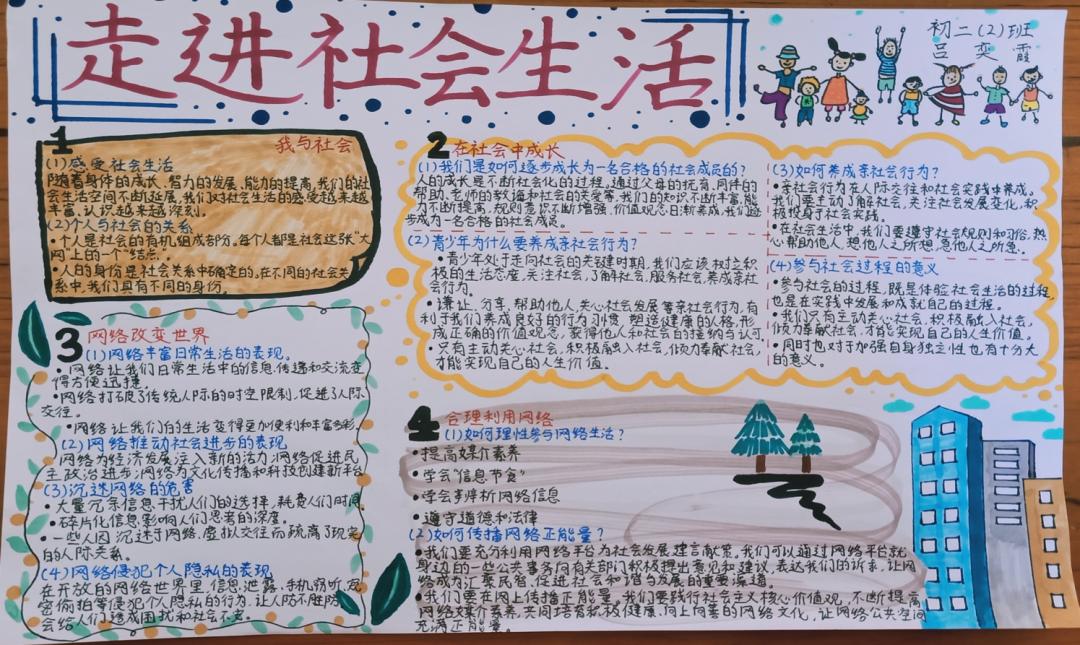 走进社会生活
初二(2)班
吕奕霞
1
我与社会
(1)感受社会生活
随着身体的成长、智力的发展、能力的提高,我们的社
会生活空间不断延展,我们对社会生活的感受越来越
丰富、认识越来越深刻。
(2)个人与社会的关系
·个人是社会的有机组成部分。每个人都是社会这张"大
网"上的一个"结点"。
·人的身份是社会关系中确定的。在不同的社会关
系中,我们具有不同的身份。
2
在社会中成长
(1)我们是如何逐步成长为一名合格的社会成员的?
人的成长是不断社会化的过程。通过父母的抚育、同伴的
帮助、老师的教诲和社会的关爱等,我们的知识不断丰富,能
力不断提高,规则意识不断增强,价值观念日渐养成,我们逐
步成为一名合格的社会成员。
(2)青少年为什么要养成亲社会行为?
·青少年处于走向社会的关键时期,我们应该树立积
极的生活态度,关注社会,了解社会,服务社会,养成亲社
会行为。
·谦让、分享、帮助他人、关心社会发展等亲社会行为,有
利于我们养成良好的行为习惯,塑造健康的人格,形
成正确的价值观念,获得他人和社会的接纳与认可。
·只有主动关心社会,积极融入社会,倾力奉献社会,
才能实现自己的人生价值。
(3)如何养成亲社会行为?
·亲社会行为在人际交往和社会实践中养成。
我们要主动了解社会,关注社会发展变化,积
极投身于社会实践。
·在社会生活中,我们要遵守社会规则和习俗,热
心帮助他人,想他人之所想,急他人之所急。
(4)参与社会过程的意义
·参与社会的过程,既是体验社会生活的过程,
也是在实践中发展和成就自己的过程。
·我们只有主动关心社会,积极融入社会,
倾力奉献社会,才能实现自己的人生价值。
·同时也对于加强自身独立性也有十分大
的意义。
3
网络改变世界
(1)网络丰富日常生活的表现。
·网络让我们日常生活中的信息传递和交流变
得方便迅捷。
·网络打破了传统人际的时空限制,促进了人际
交往。
·网络让我们的生活变得更加便利和丰富多彩。
(2)网络推动社会进步的表现
网络为经济发展注入新的活力;网络促进民
主政治进步;网络为文化传播和科技创建新平台
(3)沉迷网络的危害
·大量冗余信息干扰人们的选择,耗费人们时间
·碎片化信息影响人们思考的深度。
·一些人因沉迷于网络、虚拟交往而疏离了现实
的人际关系。
(4)网络侵犯个人隐私的表现
在开放的网络世界里,信息泄露、手机窃听、
密偷拍等侵犯个人隐私的行为,让人防不胜防,
会给人们造成困扰和社会不安。
4
合理利用网络
(1)如何理性参与网络生活?
·提高媒介素养
·学会"信息节食"
·学会辨析网络信息
·遵守道德和法律
(2)如何传播网络正能量?
·我们要充分利用网络平台为社会发展建言献策。我们可以通过网络平台就
身边的一些公共事务向有关部门积极提出意见和建议,表达我们的诉求,让网
络成为汇聚民智、促进社会和谐与发展的重要渠道。
·我们要在网上传播正能量。我们要践行社会主义核心价值观,不断提高
网络媒介素养,共同培育积极健康、向上向善的网络文化,让网络公共空间
充满正能量。